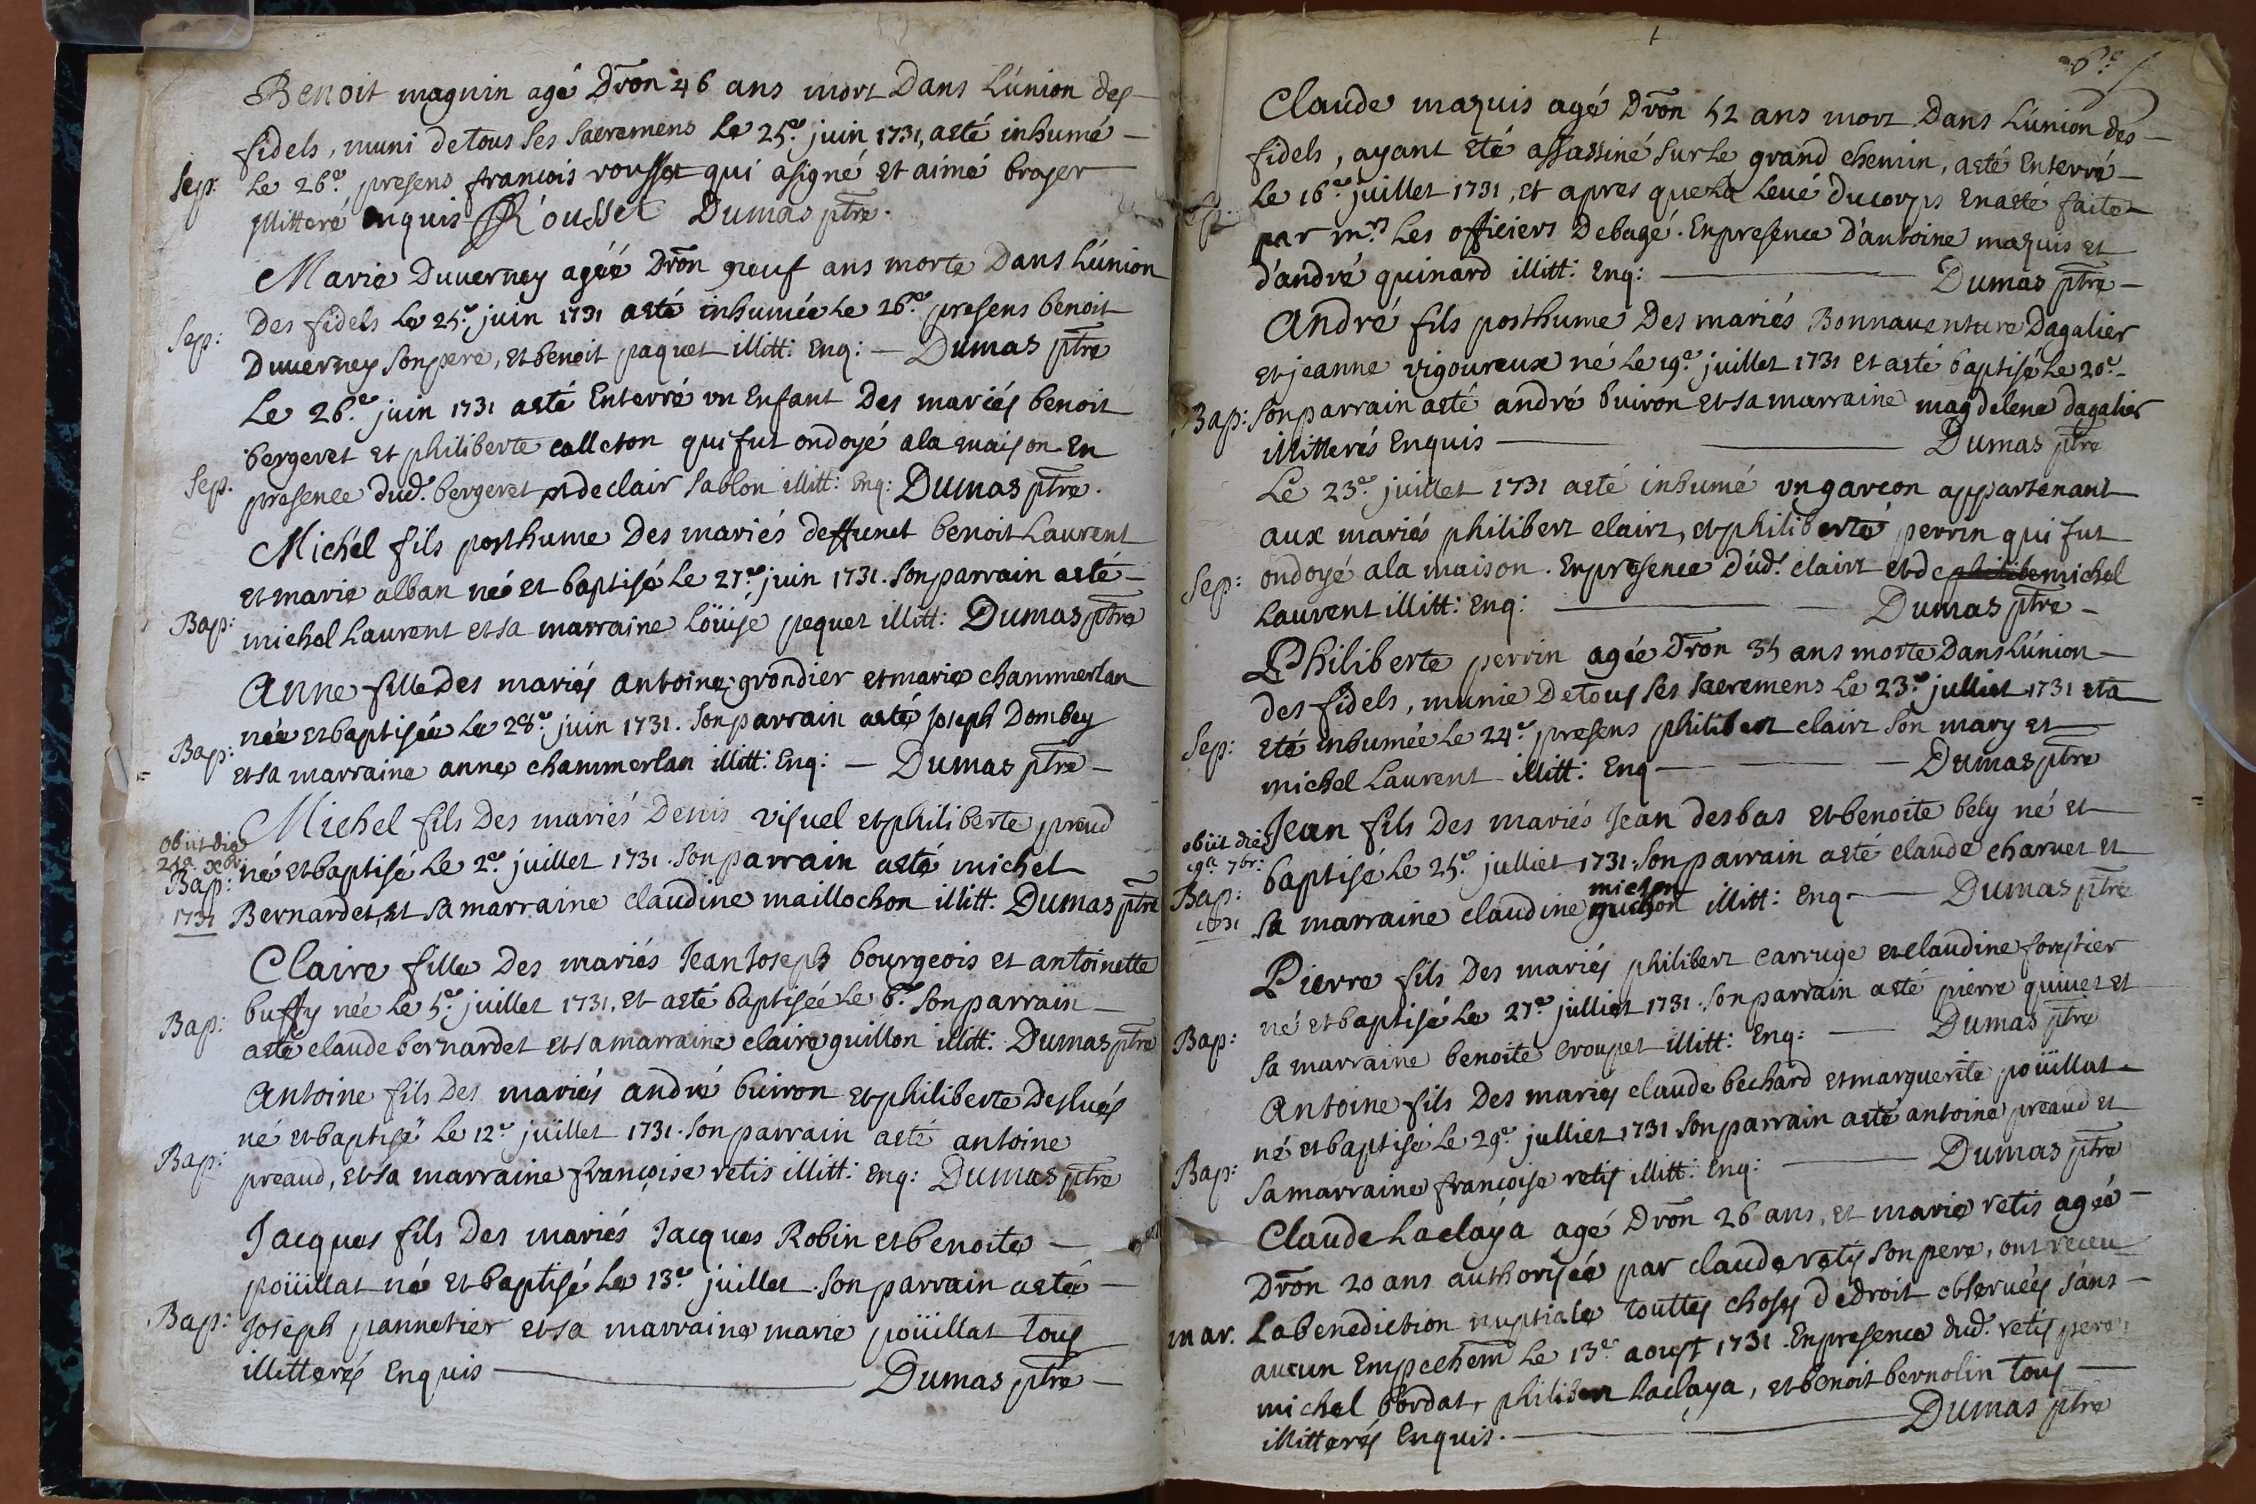 Benoit maguin agé Dron 46 ans mort Dans L'union des
fidels, muni de tous ses sacremens le 25e juin 1731, a eté inhumé
Sep: le 26e presens francois rousset qui a signé et aimé broyer
illitteré enquis Rousset Dumas ptre.
Marie Duverney agéé Dron neuf ans morte Dans L'union
Des fidels le 25e juin 1731 a eté inhumée le 26e presens benoit
Sep:
Duverney son pere, et benoit paquet illitt: Enq: — Dumas ptre
Le 26e juin 1731 a eté Enterré un Enfant Des mariés benoit
bergeret et philiberte calleton qui fut ondoyé a la maison En
Sep. presence dud. bergeret et de clair sablon illitt: Enq: Dumas ptre.
Michel fils posthume Des mariés deffunct benoit Laurent
et marie alban né et baptisé le 27e juin 1731. Son parrain a eté
Bap: michel Laurent et sa marraine Loüise pequet illitt: Dumas ptre
Anne fille Des mariés antoine grondier et marie chammerlan
née et baptisée le 28e juin 1731. Son parrain a eté Joseph Dombey
Bap: et sa marraine anne chammerlan illitt: Enq: — Dumas ptre
Michel fils Des mariés Denis visuel et philiberte preud
obiit die
né et baptisé le 2e juillet 1731. Son parrain a eté michel
Bap:
1731 Bernardet, et sa marraine claudine maillochon illitt: Dumas ptre
Claire fille Des mariés Jean Joseph bourgeois et antoinette
Bap: buffy née le 5e juillet 1731, et a eté baptisée le 6e Son parrain
a eté claude bernardet et sa marraine claire guillon illitt: Dumas ptre
Antoine fils Des mariés andré buiron et philiberte Desluës
né et baptisé le 12e juillet 1731. Son parrain a eté antoine
Bap: preaud, et sa marraine françoise retis illitt: Enq: Dumas ptre
Jacques fils Des mariés Jacques Robin et benoite
poüillat né et baptisé le 13e juillet. Son parrain a eté
Bap: Joseph pannetier et sa marraine marie poüillat tous
illitterés Enquis — Dumas ptre
6e
Claude maquis agé Dron 52 ans mort Dans L'union des
fidels, ayant eté assassiné sur le grand chemin, a eté Enterré
le 16e juillet 1731, et apres que la levé du corps en a eté faite
par mrs les officiers de bagé. En presence d'antoine maquis et
d'andré guinard illitt: Enq: — Dumas ptre
André fils posthume Des mariés Bonnaventure Dagalier
et jeanne vigoureux né le 19e juillet 1731 et a eté baptisé le 20e
Bap: son parrain a eté andré buiron et sa marraine magdelene dagalier
illitterés Enquis — Dumas ptre
Le 23e juillet 1731 a eté inhumé un garcon appartenant
aux mariés philibert clairt, et philiberte perrin qui fut
Sep: ondoyé a la maison. En presence dud. clairt et de philibe michel
Laurent illitt: Enq: — Dumas ptre
Philiberte perrin agée Dron 35 ans morte Dans L'union
des fidels, munie De tous ses sacremens le 23e julliet 1731 et a
Sep: eté inhumée le 24e presens philibert clairt son mary et
michel Laurent illitt: Enq — Dumas ptre
Jean fils Des mariés Jean desbas et benoite bely né et
obiit die
19a 7br:
baptisé le 25e julliet 1731. Son parrain a eté claude charvet et
Bap:
1731
michon
sa marraine claudine illitt: Enq. — Dumas ptre
Pierre fils Des mariés philibert carruge et claudine forestier
né et baptisé le 27e julliet 1731. Son parrain a eté pierre quivet et
Bap: sa marraine benoite croupet illitt: Enq: — Dumas ptre
Antoine fils Des mariés claude bechard et marguerite poüillat
né et baptisé le 29e julliet 1731 Son parrain a eté antoine preaud et
Bap: sa marraine françoise retis illitt: Enq: — Dumas ptre
Claude Laclaÿa agé Dron 26 ans, et marie retis agée
Dron 20 ans authorisée par claude retis son pere, ont receu
mar. La benediction nuptiale touttes choses de droit observées sans
aucun Empechem le 13e aoust 1731. En presence dud. retis pere
michel bordat, philibert Laclaya, et benoit bernolin tous
illitterés Enquis. — Dumas ptre